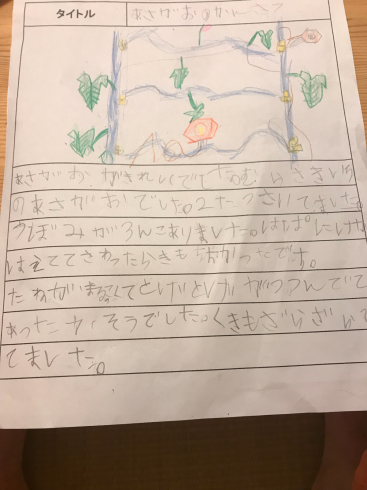 タイトル
あさがおのかんさつ
あさがおがきれいでした。むらさきいろ
のあさがおでした。2たつさいてました
つぼみが3んこありました。はっぱにけが
はえててさわったらきもちかったです。
たねがまるくてとげとげがつつんでて
あった
そうでした。くきもざらざらして
てました。